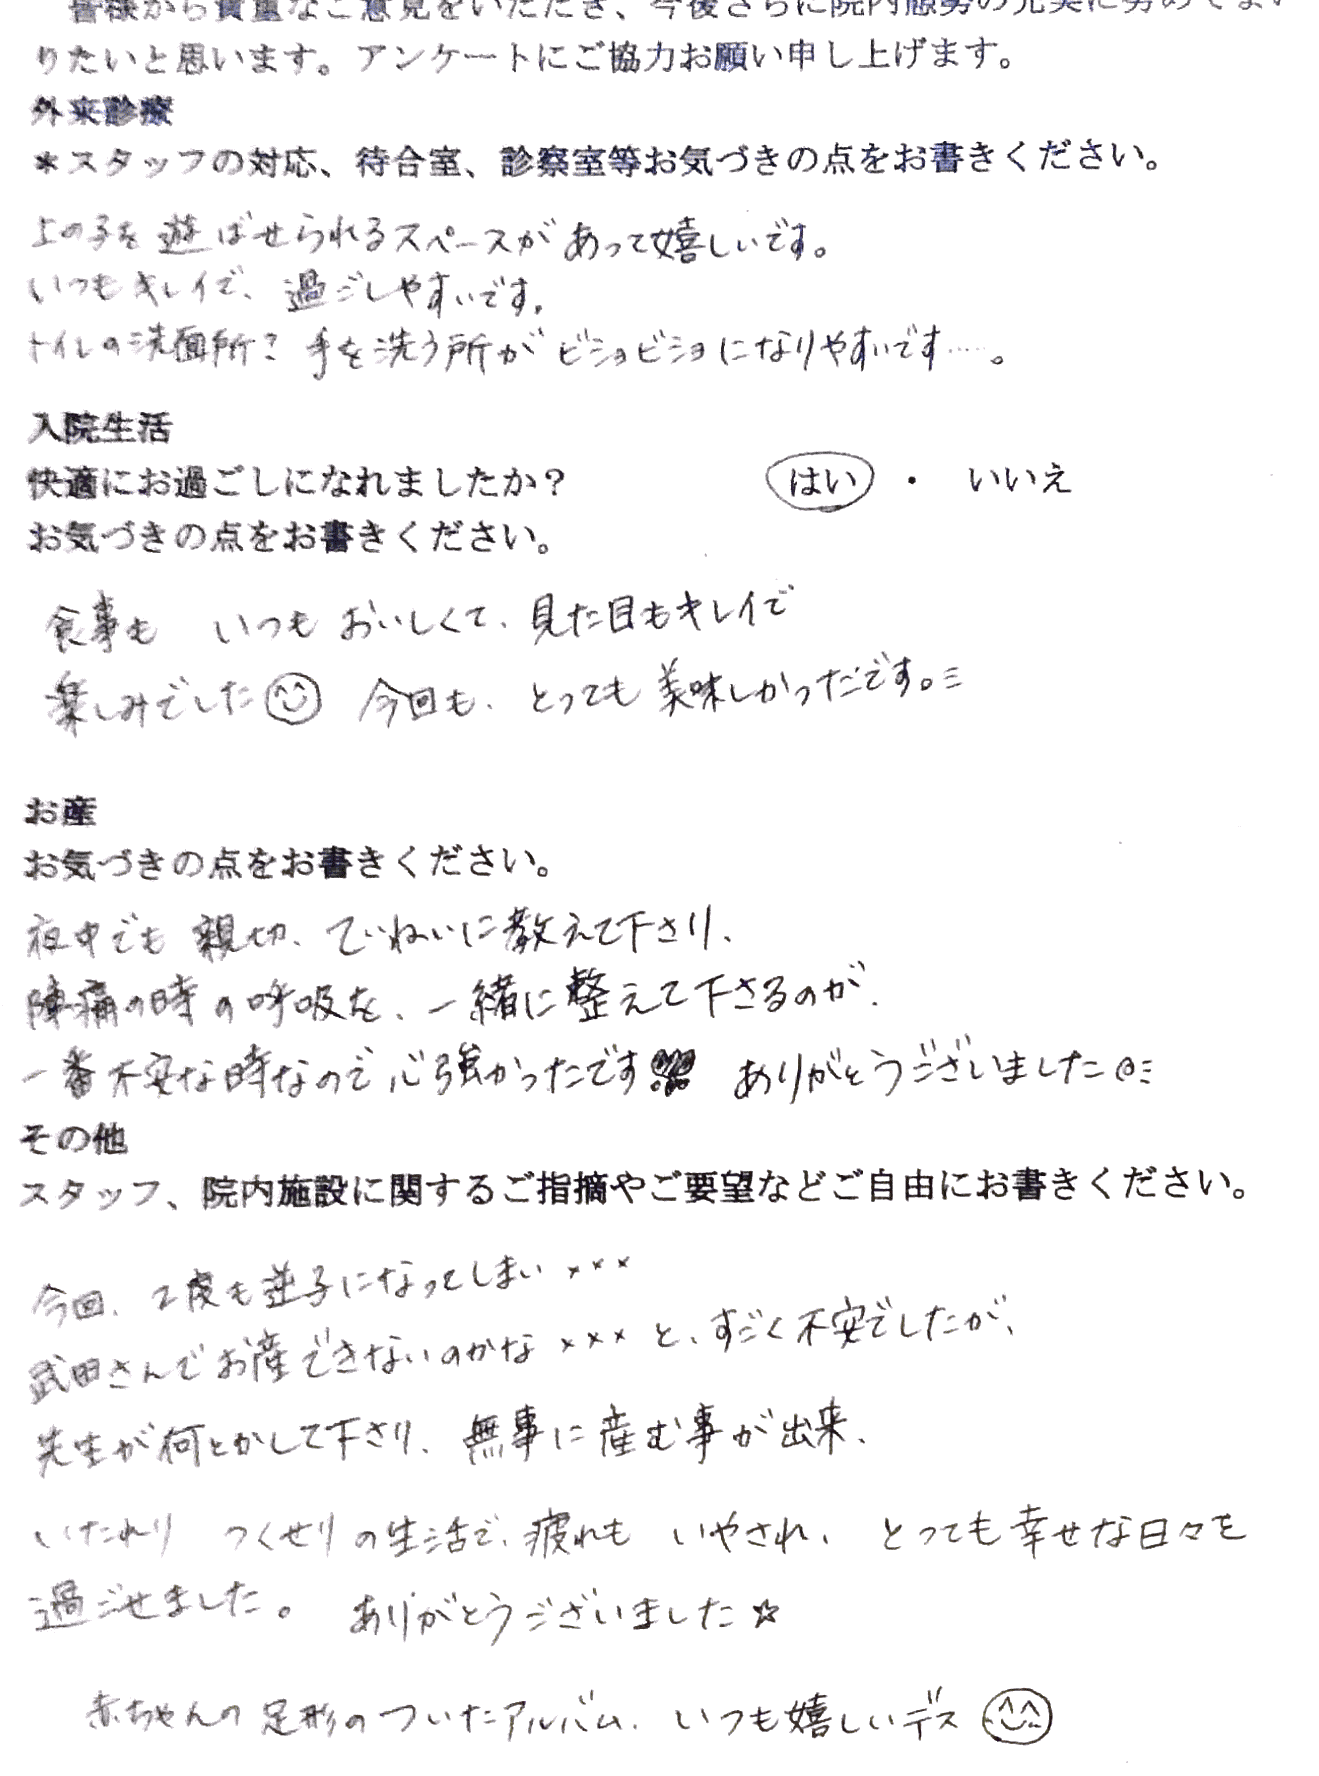 皆様から貴重なご意見をいただき、今後さらに院内態勢の充実に努めてまい
りたいと思います。アンケートにご協力お願い申し上げます。
外来診療
＊スタッフの対応、待合室、診察室等お気づきの点をお書きください。
上の子を遊ばせられるスペースがあって嬉しいです。
いつもキレイで、過ごしやすいです。
トイレの洗面所？手を洗う所がビショビショになりやすいです……。
入院生活
快適にお過ごしになれましたか？ はい ・ いいえ
お気づきの点をお書きください。
食事も いつも おいしくて、見た目もキレイで
楽しみでした 今回も、とっても美味しかったです。
お産
お気づきの点をお書きください。
夜中でも親切、ていねいに教えて下さり、
陣痛の時の呼吸を、一緒に整えて下さるのが、
一番不安な時なので心強かったです!! ありがとうございました
その他
スタッフ、院内施設に関するご指摘やご要望などご自由にお書きください。
今回、2度も逆子になってしまい×××
武田さんでお産できないのかな×××と、すごく不安でしたが、
先生が何とかして下さり、無事に産む事が出来、
いたれり つくせりの生活で、疲れも いやされ、 とっても幸せな日々を
過ごせました。 ありがとうございました☆
赤ちゃんの足形のついたアルバム、いつも嬉しいデス